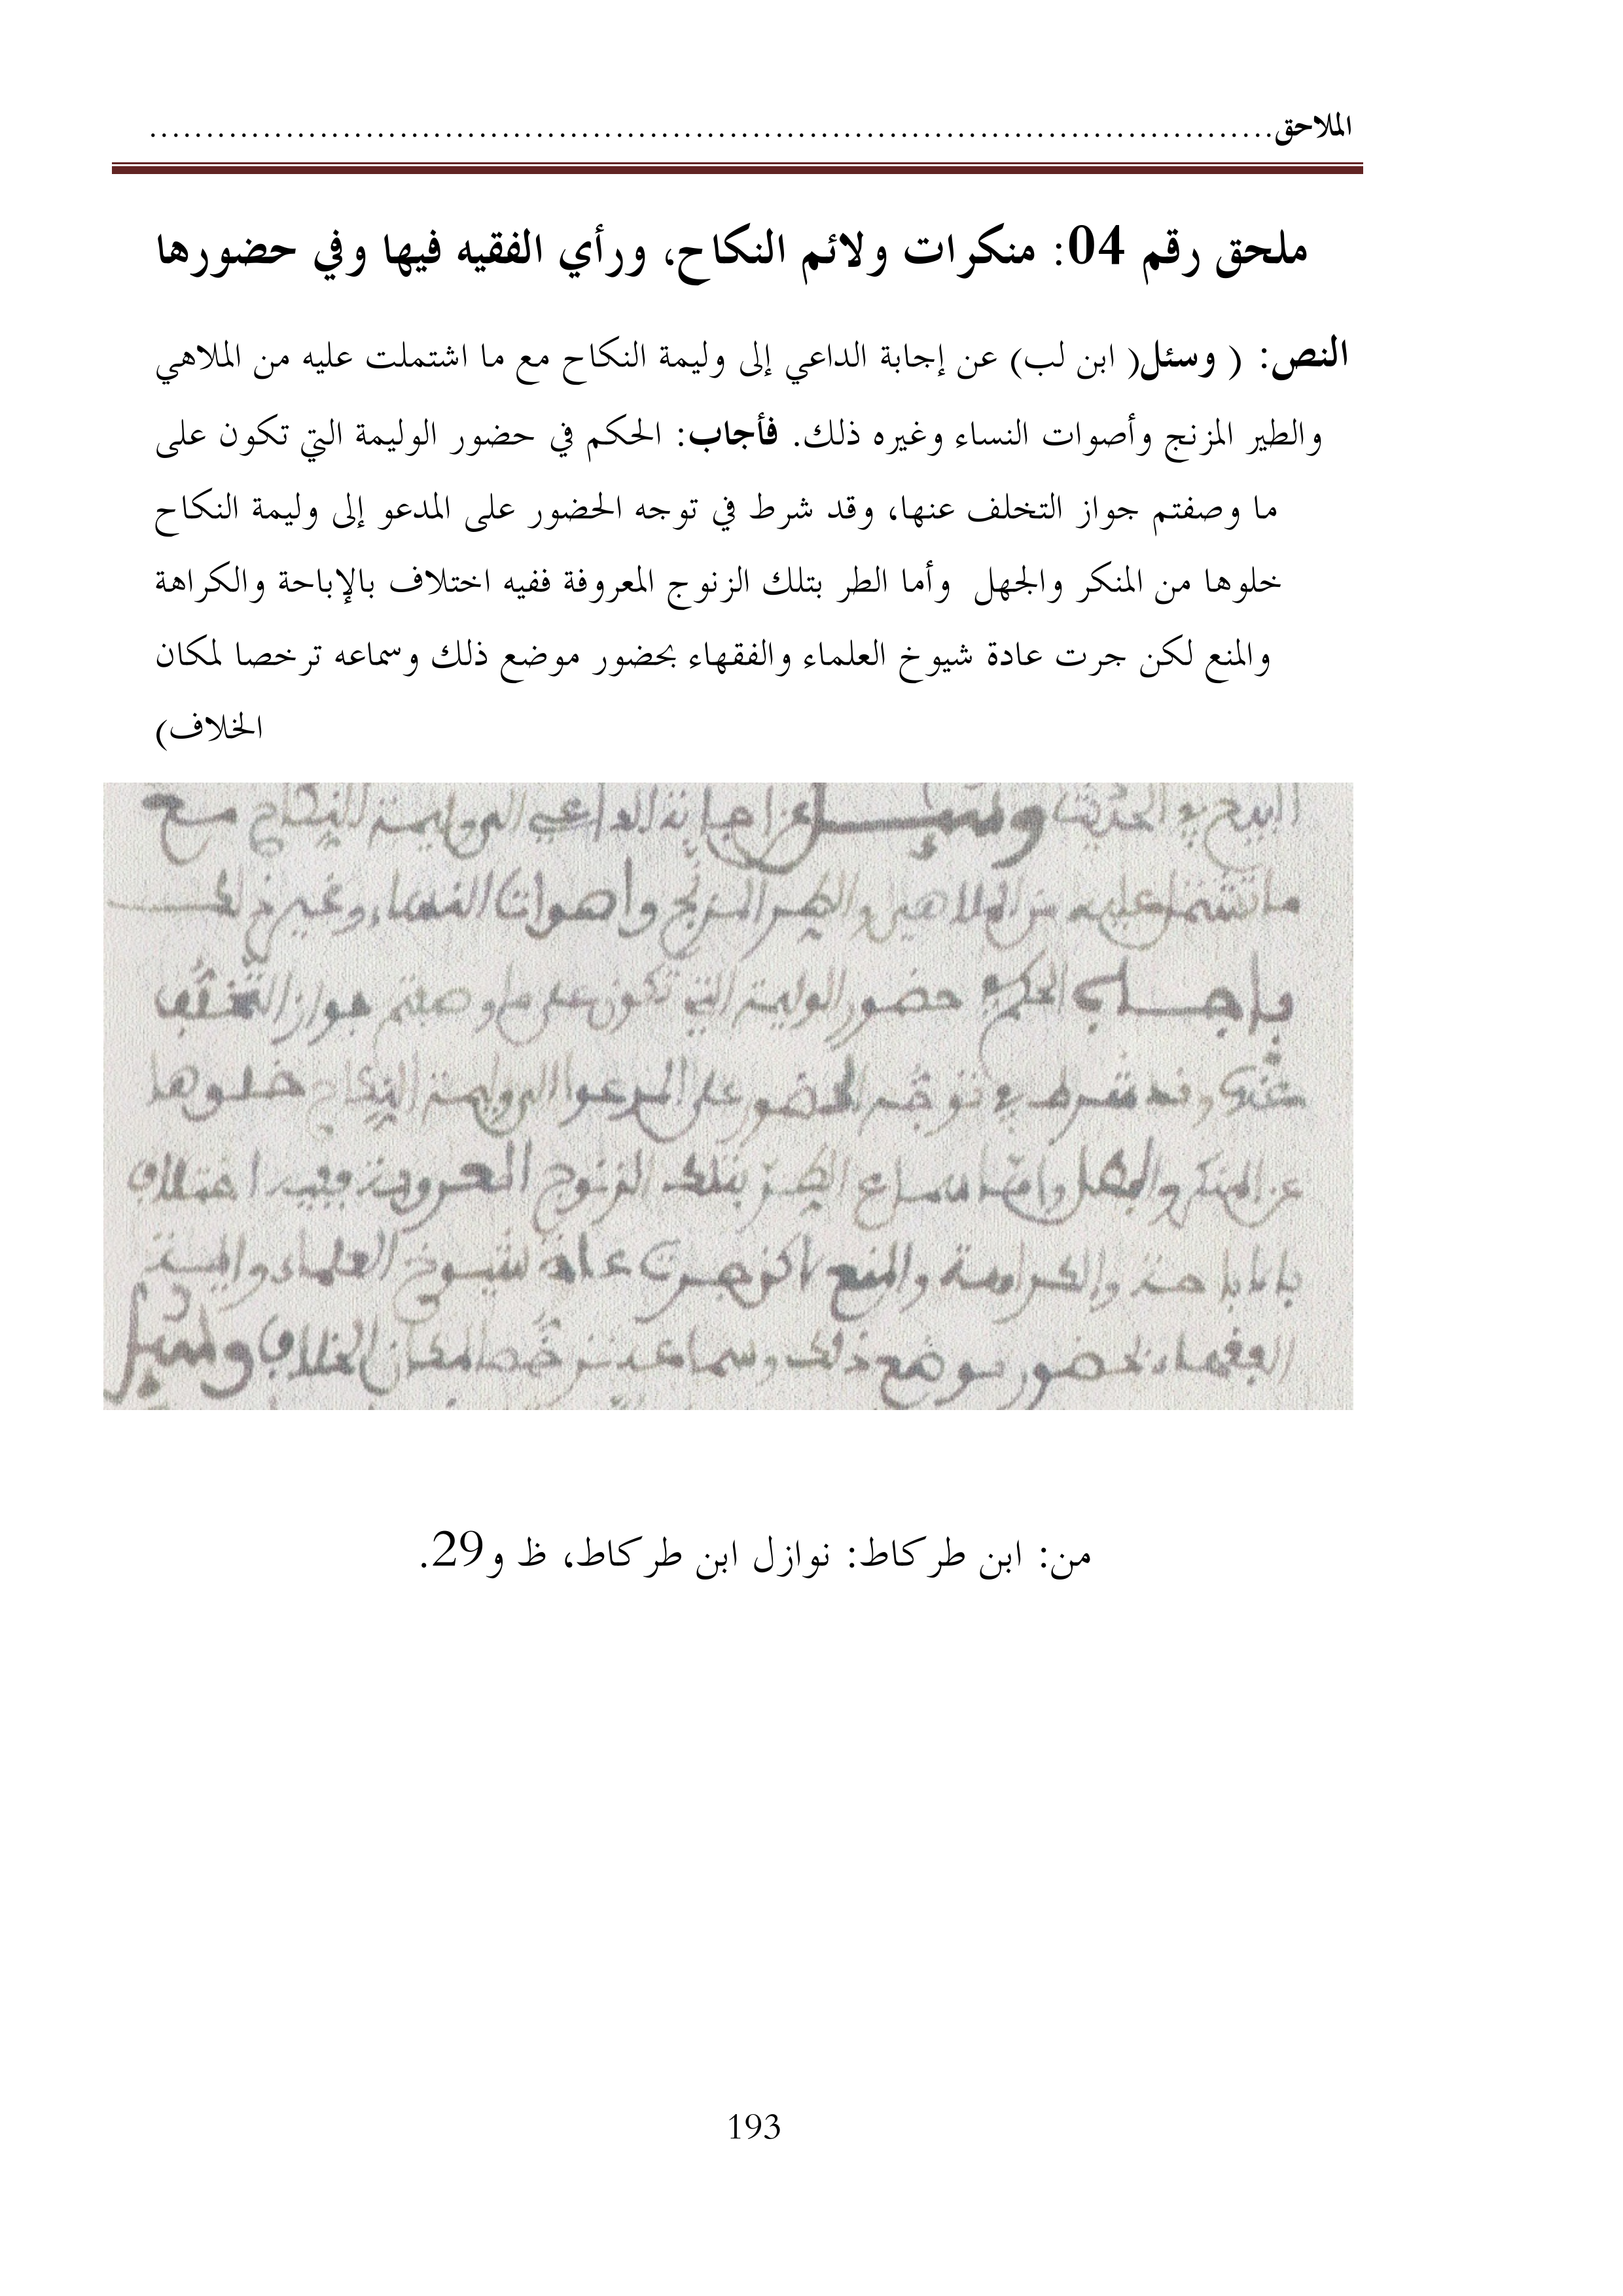 الملاحق....................................................................................................
ملحق رقم 04: منكرات ولائم النكاح، ورأي الفقيه فيها وفي حضورها
النص: ( وسئل( ابن لب) عن إجابة الداعي إلى وليمة النكاح مع ما اشتملت عليه من الملاهي
والطير المزنج وأصوات النساء وغيره ذلك. فأجاب: الحكم في حضور الوليمة التي تكون على
ما وصفتم جواز التخلف عنها، وقد شرط في توجه الحضور على المدعو إلى وليمة النكاح
خلوها من المنكر والجهل وأما الطر بتلك الزنوج المعروفة ففيه اختلاف بالإباحة والكراهة
والمنع لكن جرت عادة شيوخ العلماء والفقهاء بحضور موضع ذلك وسماعه ترخصا لمكان
الخلاف)
وسئل عن اجابة الداعي الى وليمة النكاح مع
ما تشتمل عليه من الملاهي والطير المزنج واصوات النساء وغير ذلك
فاجاب الحكم في حضور الوليمة التي تكون على ما وصفتم جواز التخلف
عنها وقد شرط في توجه الحضور على المدعوا الى وليمة النكاح خلوها
عن المنكر والجهل واما سماع الطر بتلك الزنوج المعروفة ففيه اختلاف
بالاباحة والكراهة والمنع لاكن جرت عادة شيوخ العلماء
الفقهاء بحضور موضع ذلك وسماعه ترخصا لمكان الخلاف وسئل
من: ابن طركاط: نوازل ابن طركاط، ظ و29.
193